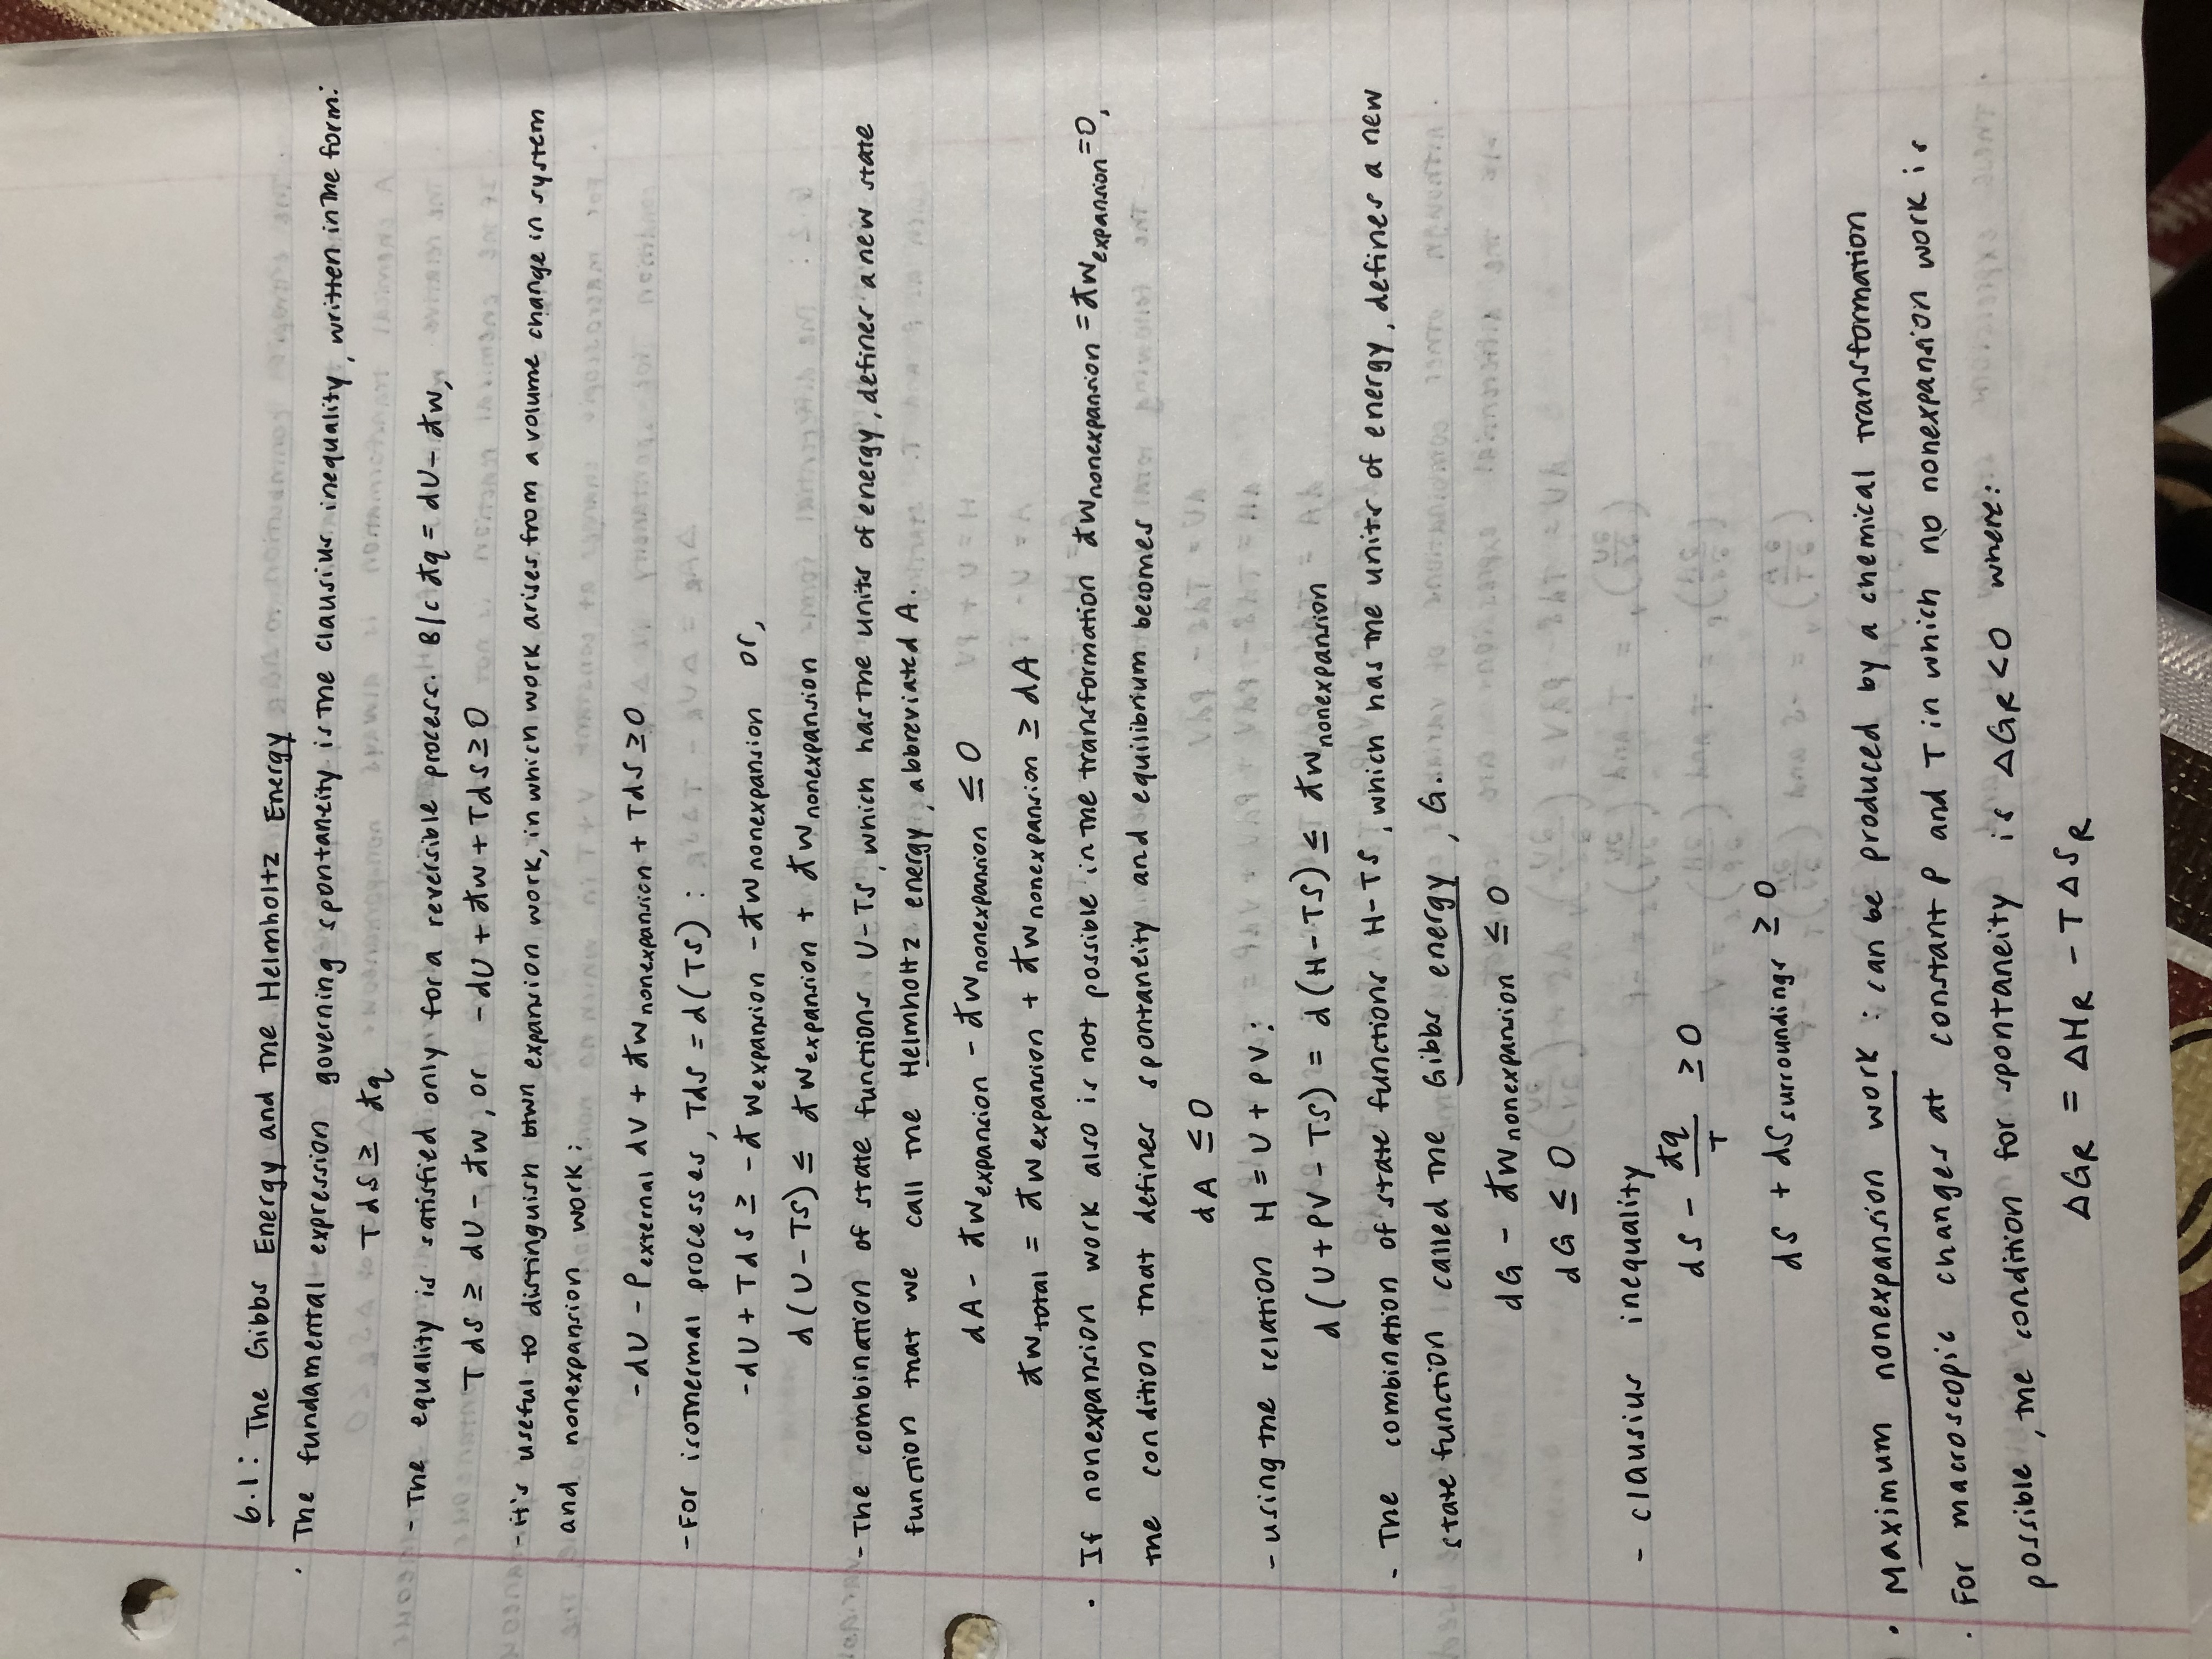 6.1: The Gibbs Energy and the Helmholtz Energy
· The fundamental expression governing spontaneity is the clausius inequality, written in the form:
TdS ≥ đq
- The equality is satisfied only for a reversible process. B/c đq = dU - đw,
TdS ≥ dU - đw, or -dU + đw + TdS ≥ 0
- it's useful to distinguish btwn expansion work, in which work arises from a volume change in system
and nonexpansion work:
-dU - P_external dV + đw_nonexpansion + TdS ≥ 0
- For isothermal processes, TdS = d(TS) :
-dU + TdS ≥ -đw_expansion - đw_nonexpansion or,
d(U-TS) ≤ đw_expansion + đw_nonexpansion
- The combination of state functions U-TS, which has the units of energy, defines a new state
function that we call the Helmholtz energy, abbreviated A.
dA - đw_expansion - đw_nonexpansion ≤ 0
đw_total = đw_expansion + đw_nonexpansion ≥ dA
· If nonexpansion work also is not possible in the transformation đw_nonexpansion = đw_expansion = 0,
the condition that defines spontaneity and equilibrium becomes
dA ≤ 0
- using the relation H = U + PV:
d(U+PV - TS) = d(H-TS) ≤ đw_nonexpansion
- The combination of state functions H-TS, which has the units of energy, defines a new
state function called the Gibbs energy, G.
dG - đw_nonexpansion ≤ 0
dG ≤ 0
- clausius inequality
dS - đq/T ≥ 0
dS + dS_surroundings ≥ 0
· Maximum nonexpansion work : can be produced by a chemical transformation
· For macroscopic changes at constant P and T in which no nonexpansion work is
possible, the condition for spontaneity is ΔG_R < 0 where:
ΔG_R = ΔH_R - TΔS_R